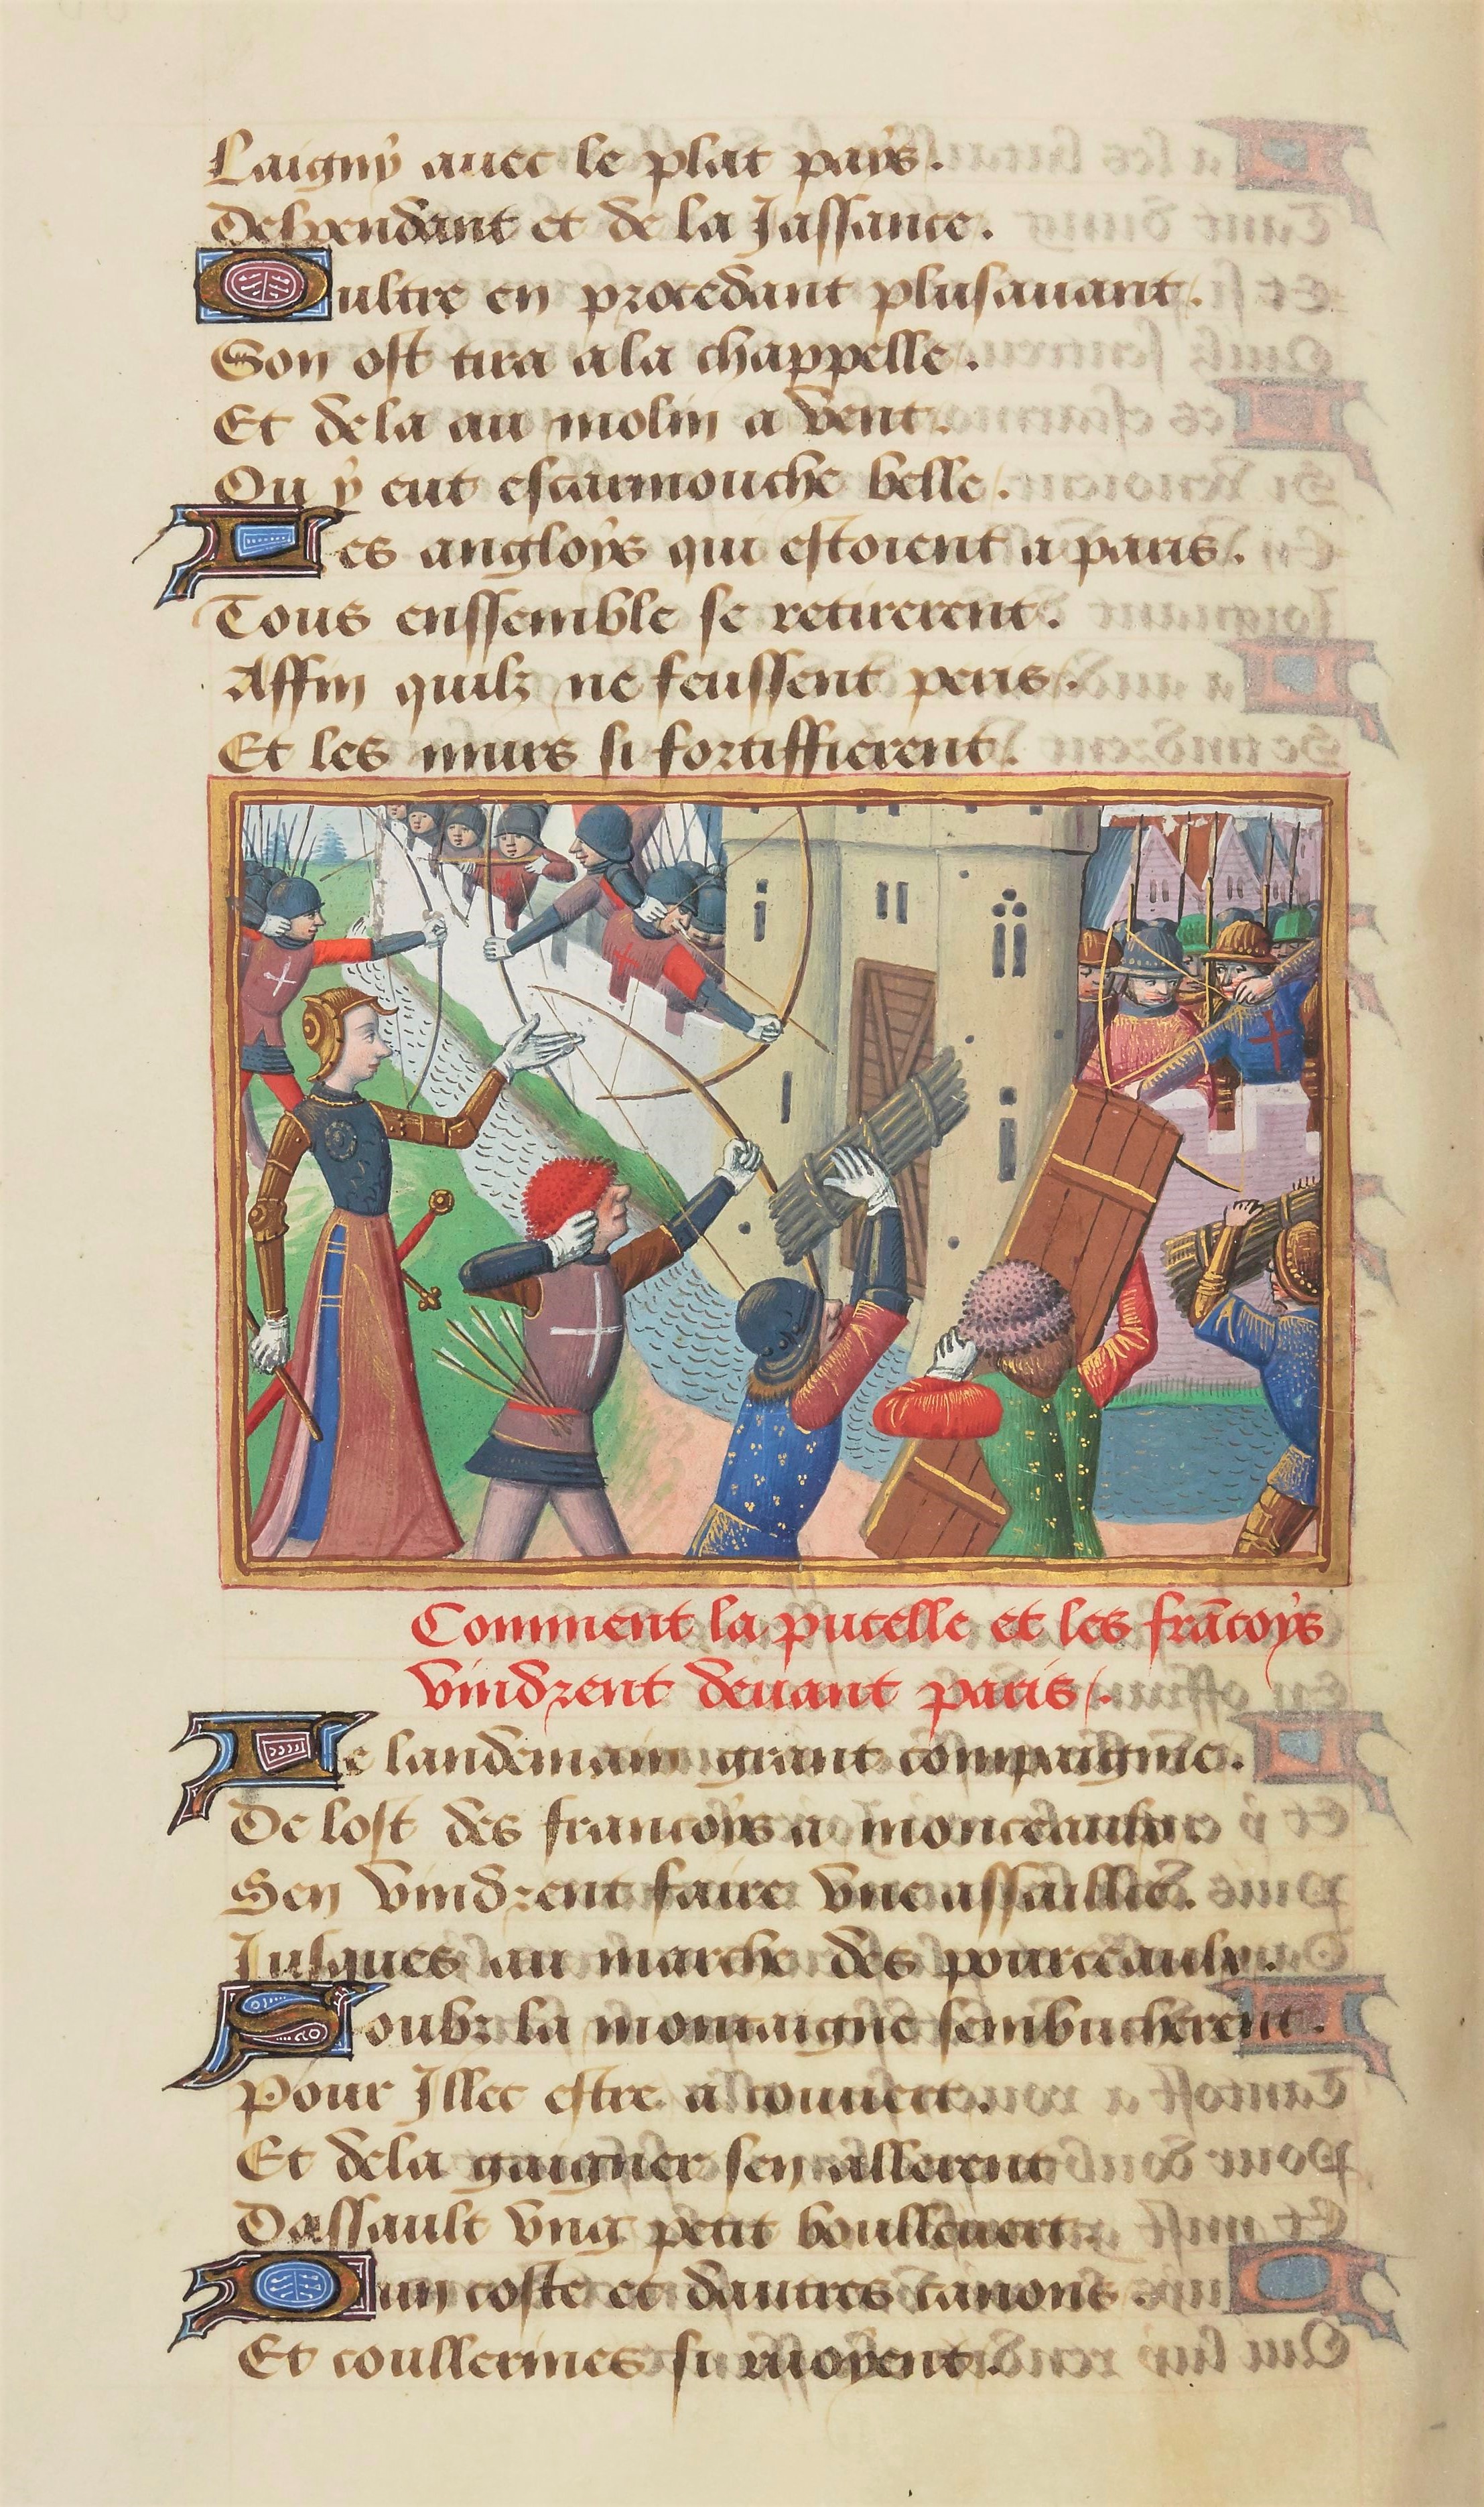 Laigny auec le plat pays.
Despendant et de la Jassance.
Oultre en procedant plusauant.
Son ost tira a la chappelle.
Et dela au molin a vent.
Ou y eut escarmouche belle.
Les angloys qui estoient a paris.
Tous enssemble se retirerent.
Affin quilz ne feussent peris.
Et les murs si fortiffierent.
Comment la pucelle et les frācoys
vindrent deuant paris.
Le landemain grant compaignie.
De lost des francoys a monceaulx
Sen vindrent faire vne assaillie.
Jusques au marche des pourceaulx.
Soubz la montaigne sembucherent.
Pour Illec estre a couuert.
Et dela gaigner sen allerent
Dassault vng petit boulleuert.
Dun coste et dautres canons.
Et coulleurines si ruoyent.